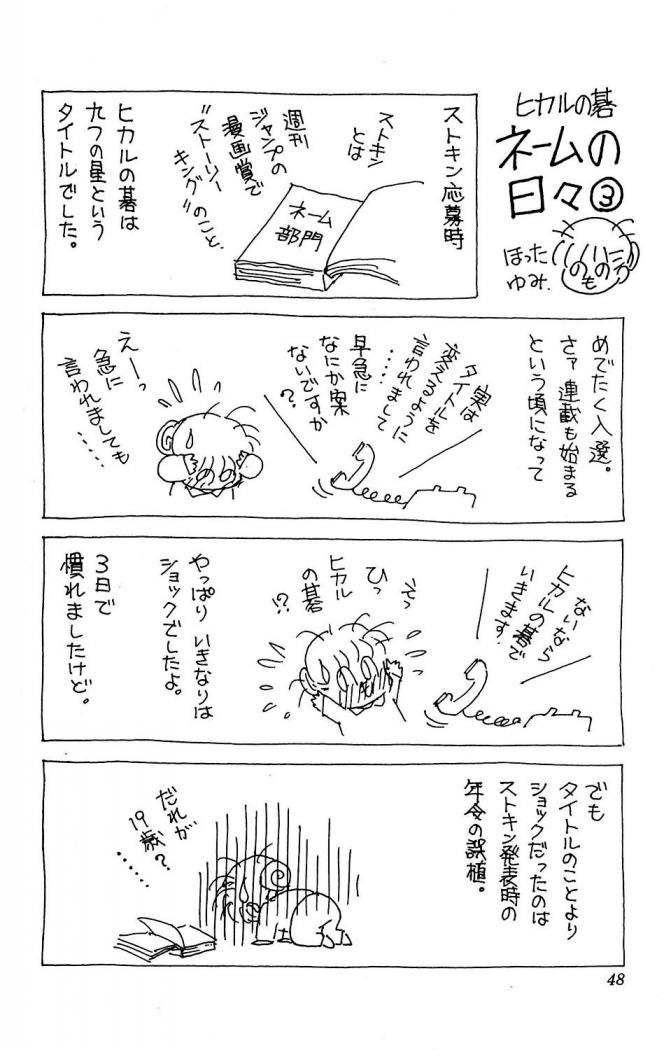 ヒカルの碁
ネームの
日々③
ほった
ゆみ
ストキン応募時
ストキン
とは
週刊
ジャンプの
漫画賞で
"ストーリー
キング"のこと
ネーム
部門
ヒカルの碁は
九つの星という
タイトルでした。
めでたく入選。
さァ連載も始まる
という頃になって
実は
タイトルを
変えるように
言われまして
……
早急に
なにか案
ないですか
?
えーっ
急に
言われましても
……
ないなら
ヒカルの碁で
いきます
えっ
ひっ
ヒカル
の碁
!?
やっぱりいきなりは
ショックでしたよ。
3日で
慣れましたけど。
でも
タイトルのことより
ショックだったのは
ストキン発表時の
年令の誤植。
だれが
19歳?
……
48